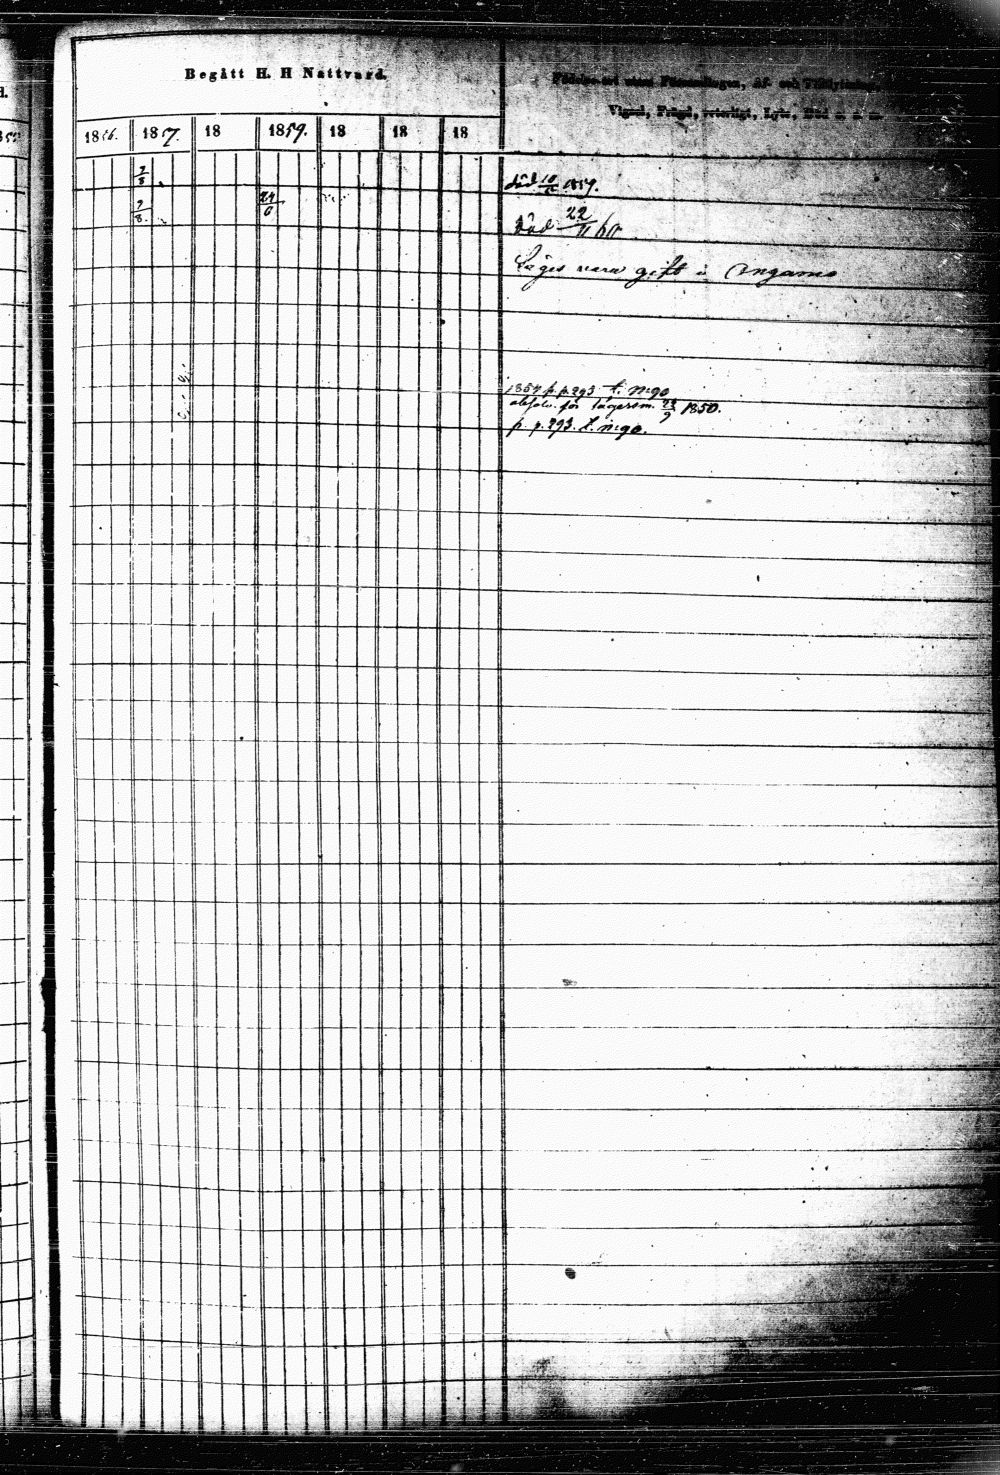 Begått H. H Nattvard.
Födelse-ort utom Församlingen, Af- och Tillflyttning,
Vigsel, Frägd, Lyte, Död m. m.
1856. 1857. 18 1859. 18 18 18
7/8
död 10/ 1859.
7/8 24/6
död 22/11 60
Säges vara gift i
1857 p. p. 293 t. n:90
absolv. för lägersm. 22/9 1850.
p. p. 293. t. n:90.